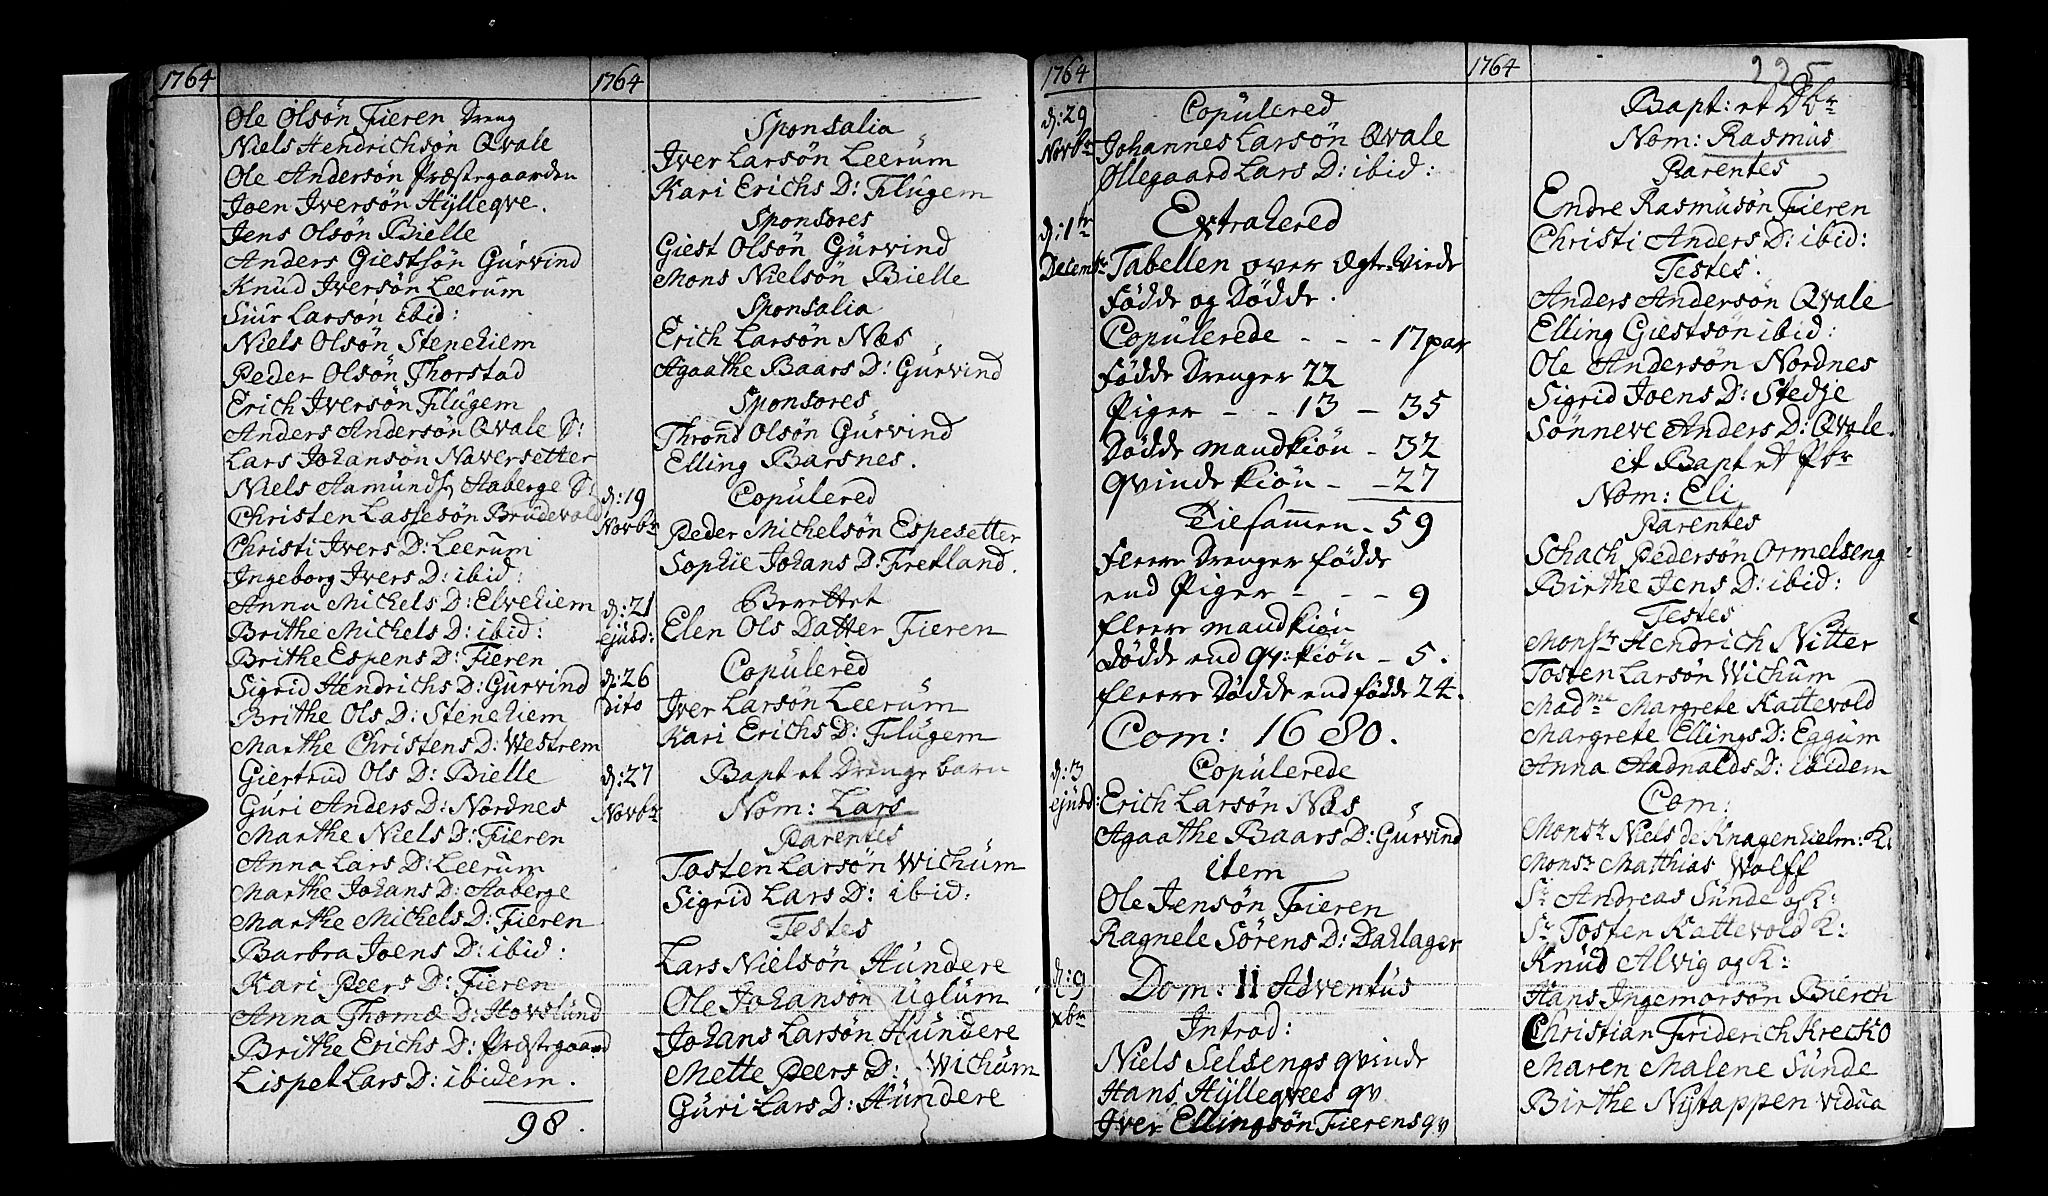 1764
Ole Olsön Fieren Dreng
Niels Hendrichsön Qvale
Ole Andersön Præstegaarden
Joen Iversön Hÿlleqve.
Jens Olsön Bielle
Anders Giestsön Gurvind
Knud Iversön Leerum
Siur Larsön ibid:
Niels Olsön Stenehiem
Peder Olsön Thorstad
Erich Iversön Flugem
Anders Andersön Qvale S:
Lars Johansön Naversetter
Niels Aamunds Aaberge S:
Christen Lassesön Brudevold
Christi Ivers D: Leerum
Ingeborg Ivers D: ibid:
Anna Michels D: Elvehiem
Brithe Michels D: ibid:
Brithe Espens D: Fieren
Sigrid Hendrichs D: Gurvind
Brithe Ols D: Stenehiem
Marthe Christens D: Westrem
Giertrud Ols D: Bielle
Guri Anders D: Nordnes
Marthe Niels D: Fieren
Anna Lars D: Leerum
Marthe Johans D: Aaberge
Marthe Michels D: Fieren
Barbra Joens D: ibid:
Kari Peers D: Fieren
Anna Thomæ D: Hovslund
Brithe Erichs D: Præstegaard
Lispet Lars D: ibidem.
98.
1764
Sponsalia
Iver Larsön Leerum
Kari Erichs D: Flugem
Sponsores
Giest Olsön Gurvind
Mons Nielsön Bielle
Sponsalia
Erich Larsön Næs
Agaathe Baars D: Gurvind
Sponsores
Thrond Olsön Gurvind
Elling Barsnes.
d: 19 Novbr
Copulered
Peder Michelsön Espesetter
Sophie Johans D: Fretland.
d: 21 ejusd:
Berettet
Elen Ols Datter Fieren
d: 26 dito
Copulered
Iver Larsön Leerum
Kari Erichs D: Flugem
d: 27 Novbr
Bapt et Drenge barn
Nom: Lars
Parentes
Tosten Larsön Wichum
Sigrid Lars D: ibid:
Testes
Lars Nielsön Hundere
Ole Johansön Uglum
Johans Larsön Hundere
Mette Peers D: Wichum
Guri Lars D: Hundere
1764
d: 29 Novbr
Copulered
Johannes Larsön Qvale
Ollegaard Lars D: ibid:
d: 1tr Decembr
Extrahered
Tabellen over Ægte-Viede
födde og Dödde.
Copulerede - - - 17 par
födde Drenger 22
Piger - - 13 - 35
Dödde mandkiön - 32
qvindekiön - - 27
Tilsammen - 59
fleere Drenger födde
end Piger - - - 9
fleere mandkiön
dödde end qv: kiön - 5.
fleere Dödde end födde 24.
Com: 1680.
d: 3 ejusd:
Copulerede
Erich Larsön Næs
Agaathe Baars D: Gurvind
item
Ole Jensön Fieren
Ragnele Sörens D: Dahlager
d: 9 xbr
Dom: II Adventus
Introd:
Niels Selsengs qvinde
Hans Hÿlleqvees qv
Iver Ellingsön Fierens qv
1764
225
Bapt: et Dbr
Nom: Rasmus
Parentes
Endre Rasmusön Fieren
Christi Anders D: ibid:
Testes.
Anders Andersön Qvale
Elling Giestsön ibid:
Ole Andersön Nordnes
Sigrid Joens D: Stedje
Sönneve Anders D: Qvale.
et Bapt et Pbr
Nom: Eli
Parentes
Schach Pedersön Ormelseng
Birthe Jens D: ibid:
Testes
Monsr Hendrich Nitter
Tosten Larsön Wichum
Madme Margrete Kattevold
Margrete Ellings D: Eggum
Anna Aadnalds D: ibidem
Com:
Monsr Niels de Knagenhielm: K:
Monsr Matthias Wolff
Sr Andreas Sunde og K:
Sr Tosten Kattevold K:
Knud Alvig og K:
Hans Ingemorsön Bierch
Christian Friderich Krecko
Maren Malene Sunde
Birthe Nÿtappen vidua